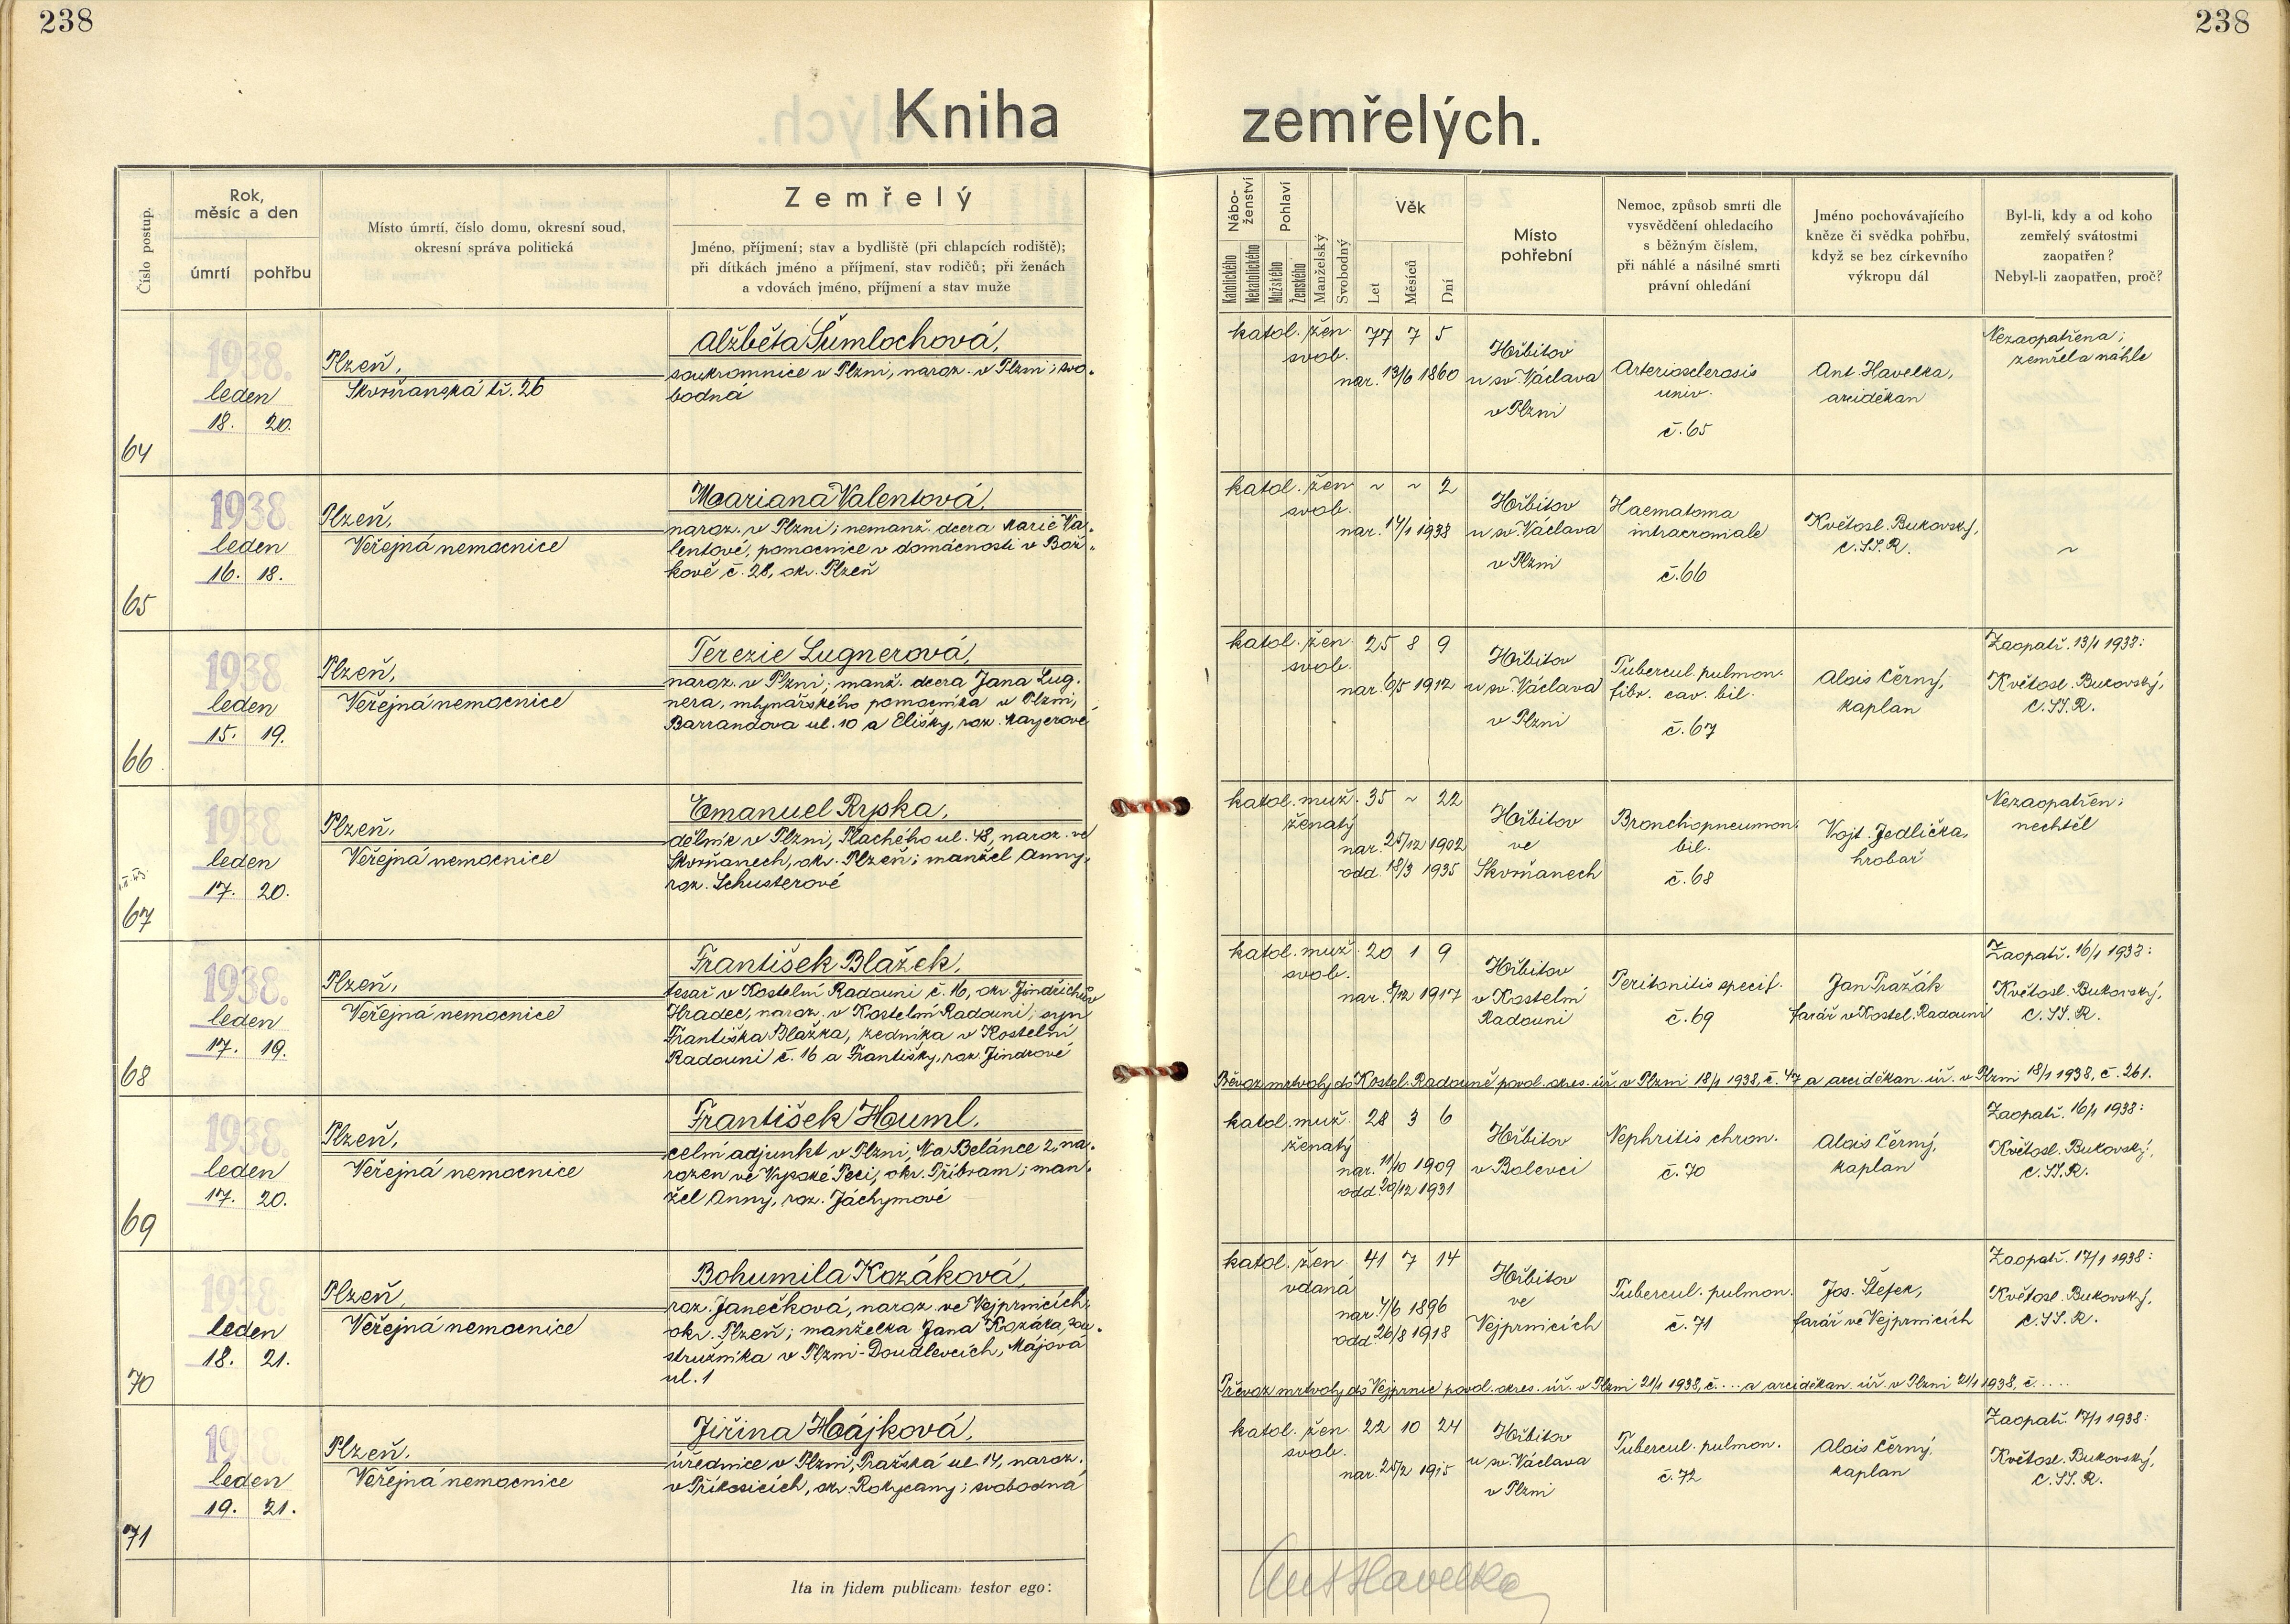 238
238
Kniha zemřelých.
Číslo postup.
Rok,
měsíc a den
úmrtí
pohřbu
Místo úmrtí, číslo domu, okresní soud,
okresní správa politická
Zemřelý
Jméno, příjmení; stav a bydliště (při chlapcích rodiště);
při dítkách jméno a příjmení, stav rodičů; při ženách
a vdovách jméno, příjmení a stav muže
Nábo-
ženství
Katolického
Nekatolického
Pohlaví
Mužského
Ženského
Manželský
Svobodný
Věk
Let
Měsíců
Dní
Místo
pohřební
Nemoc, způsob smrti dle
vysvědčení ohledacího
s běžným číslem,
při náhlé a násilné smrti
právní ohledání
Jméno pochovávajícího
kněze či svědka pohřbu,
když se bez církevního
výkropu dál
Byl-li, kdy a od koho
zemřelý svátostmi
zaopatřen?
Nebyl-li zaopatřen, proč?
64
1938.
leden
18. 20.
Plzeň,
Skvrňanská tř. 26
Alžběta Šumlochová,
soukromnice v Plzni, naroz. v Plzni; svo-
bodná
katol. žen. 77 7 5
svob.
nar. 13/6 1860
Hřbitov
u sv. Václava
v Plzni
Arteriosclerosis
univ.
č. 65
Ant. Havelka,
arciděkan
Nezaopatřena;
zemřela náhle
65
1938.
leden
16. 18.
Plzeň,
Veřejná nemocnice
Mariana Valentová,
naroz. v Plzni; nemanž. dcera Marie Va-
lentové, pomocnice v domácnosti v Bož-
kově č. 28, okr. Plzeň
katol. žen. ~ ~ 2
svob.
nar. 14/1 1938
Hřbitov
u sv. Václava
v Plzni
Haematoma
intracraniale
č. 66
Květosl. Bukovský,
C.SS.R.
~
66
1938
leden
15. 19.
Plzeň,
Veřejná nemocnice
Terezie Lugnerová,
naroz. v Plzni; manž. dcera Jana Lug-
nera, mlynářského pomocníka v Plzni,
Barrandova ul. 10 a Elišky, roz. Mayerové
katol. žen. 25 8 9
svob.
nar. 6/5 1912
Hřbitov
u sv. Václava
v Plzni
Tubercul. pulmon.
fibr. cav. bil.
č. 67
Alois Černý,
kaplan
Zaopatř. 13/1 1938:
Květosl. Bukovský,
C.SS.R.
67
1938
leden
17. 20.
Plzeň,
Veřejná nemocnice
Emanuel Rypka,
dělník v Plzni, Plachého ul. 48, naroz. ve
Skvrňanech, okr. Plzeň; manžel Anny,
roz. Schusterové
katol. muž. 35 ~ 22
ženatý
nar. 25/12 1902
odd. 18/3 1935
Hřbitov
ve
Skvrňanech
Bronchopneumon.
bil.
č. 68
Vojt. Jedlička,
hrobař
Nezaopatřen;
nechtěl
68
1938.
leden
17. 19.
Plzeň,
Veřejná nemocnice
František Blažek,
tesař v Kostelní Radouni č. 16, okr. Jindřichův
Hradec, naroz. v Kostelní Radouni; syn
Františka Blažka, zedníka v Kostelní
Radouni č. 16 a Františky, roz. Jindrové
katol. muž. 20 1 9
svob.
nar. 8/12 1917
Hřbitov
v Kostelní
Radouni
Peritonitis specif.
č. 69
Jan Pražák
farář v Kostel. Radouni
Zaopatř. 16/1 1938:
Květosl. Bukovský,
C.SS.R.
Převoz mrtvoly do Kostel. Radouně povol. okres. úř. v Plzni 18/1 1938, č. 47 a arciděkan. úř. v Plzni 18/1 1938, č. 261.
69
1938.
leden
17. 20.
Plzeň,
Veřejná nemocnice
František Houml,
celní adjunkt v Plzni, Na Belánce 2, na-
rozen ve Vysoké Peci, okr. Příbram; man-
žel Anny, roz. Jáchymové
katol. muž. 28 3 6
ženatý
nar. 11/10 1909
odd. 20/12 1931
Hřbitov
v Bolevci
Nephritis chron.
č. 70
Alois Černý,
kaplan
Zaopatř. 16/1 1938:
Květosl. Bukovský,
C.SS.R.
70
1938.
leden
18. 21.
Plzeň,
Veřejná nemocnice
Bohumila Kozáková,
roz. Janečková, naroz. ve Vejprnicích,
okr. Plzeň; manželka Jana Kozáka, sou-
stružníka v Plzni-Doudlevcích, Májová
ul. 1
katol. žen. 41 7 14
vdaná
nar. 4/6 1896
odd. 26/8 1918
Hřbitov
ve
Vejprnicích
Tubercul. pulmon.
č. 71
Jos. Štefek,
farář ve Vejprnicích
Zaopatř. 17/1 1938:
Květosl. Bukovský,
C.SS.R.
Převoz mrtvoly do Vejprnic povol. okres. úř. v Plzni 21/1 1938, č. .... a arciděkan. úř. v Plzni 21/1 1938, č. ....
71
1938.
leden
19. 21.
Plzeň.
Veřejná nemocnice
Jiřina Hájková,
úřednice v Plzni, Pražská ul. 14, naroz.
v Příkosicích, okr. Rokycany; svobodná
katol. žen. 22 10 24
svob.
nar. 25/2 1915
Hřbitov
u sv. Václava
v Plzni
Tubercul. pulmon.
č. 72
Alois Černý
kaplan
Zaopatř. 17/1 1938:
Květosl. Bukovský,
C.SS.R.
Ita in fidem publicam testor ego:
Ant Havelka